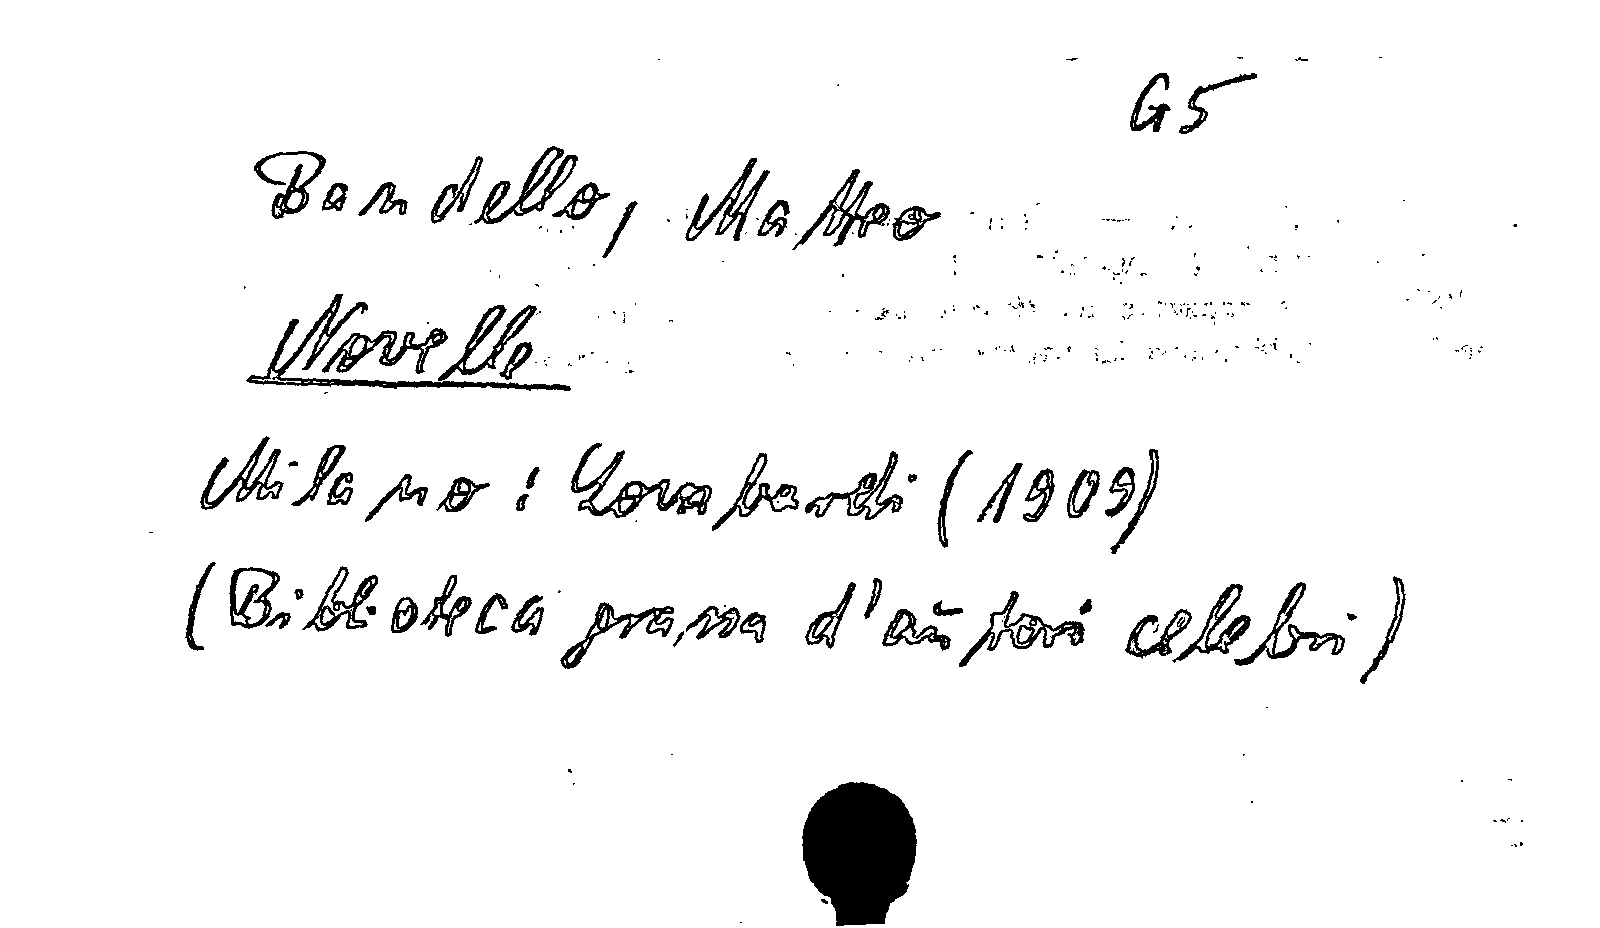 G5
Bandello, Matteo
Novelle
Milano : Lombardi (1909)
(Biblioteca gramma d'autori celebri)